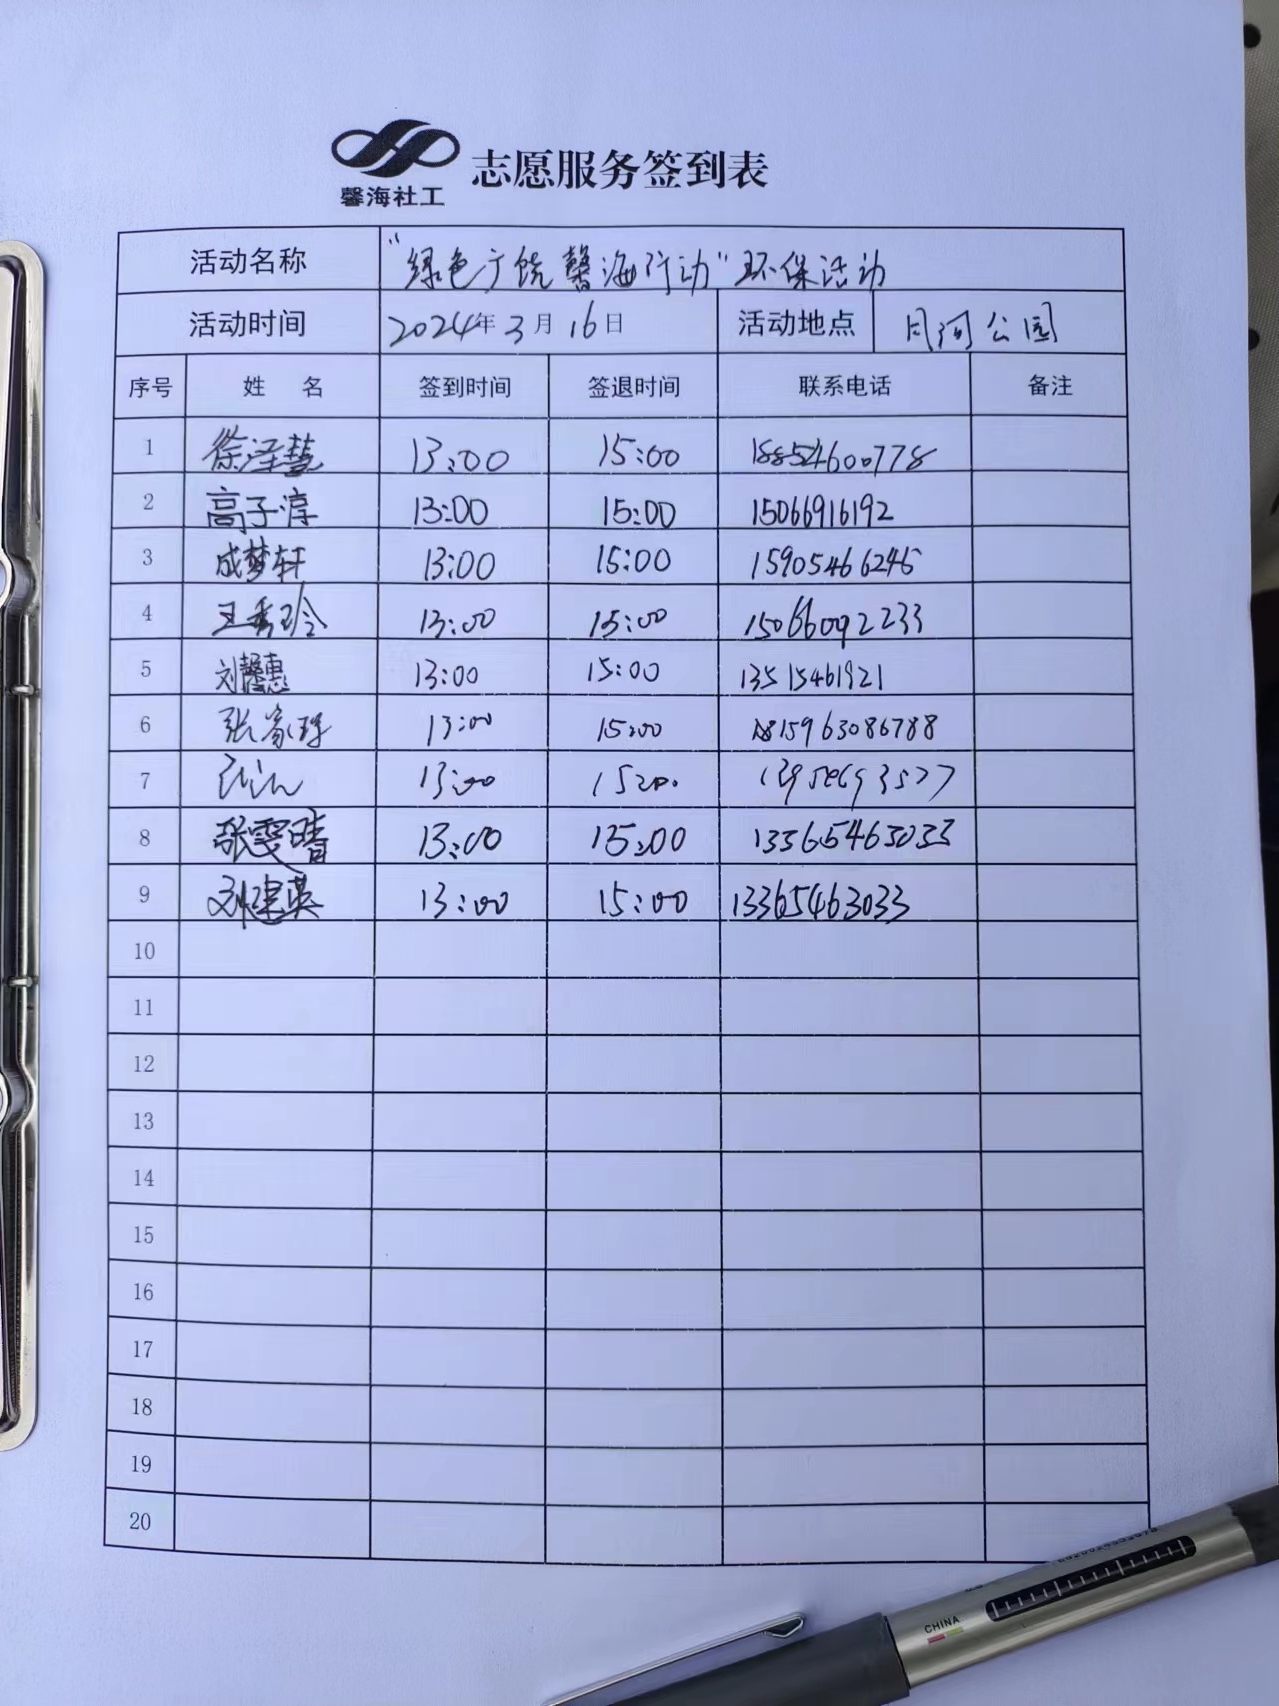 馨海社工
志愿服务签到表
活动名称 “绿色广饶馨海行动”环保活动
活动时间 2024年3月16日 活动地点 月河公园
序号 姓 名 签到时间 签退时间 联系电话 备注
1 徐泽慧 13:00 15:00 18854600778
2 高子淳 13:00 15:00 15066916192
3 成梦轩 13:00 15:00 15905466246
4 王秀玲 13:00 15:00 15066092233
5 刘馨惠 13:00 15:00 13515461921
6 张家 13:00 15:00 15963086788
7 13:00 15:00
8 张雯晴 13:00 15:00 13365463033
9 刘建英 13:00 15:00 13365463033
10
11
12
13
14
15
16
17
18
19
20
CHINA